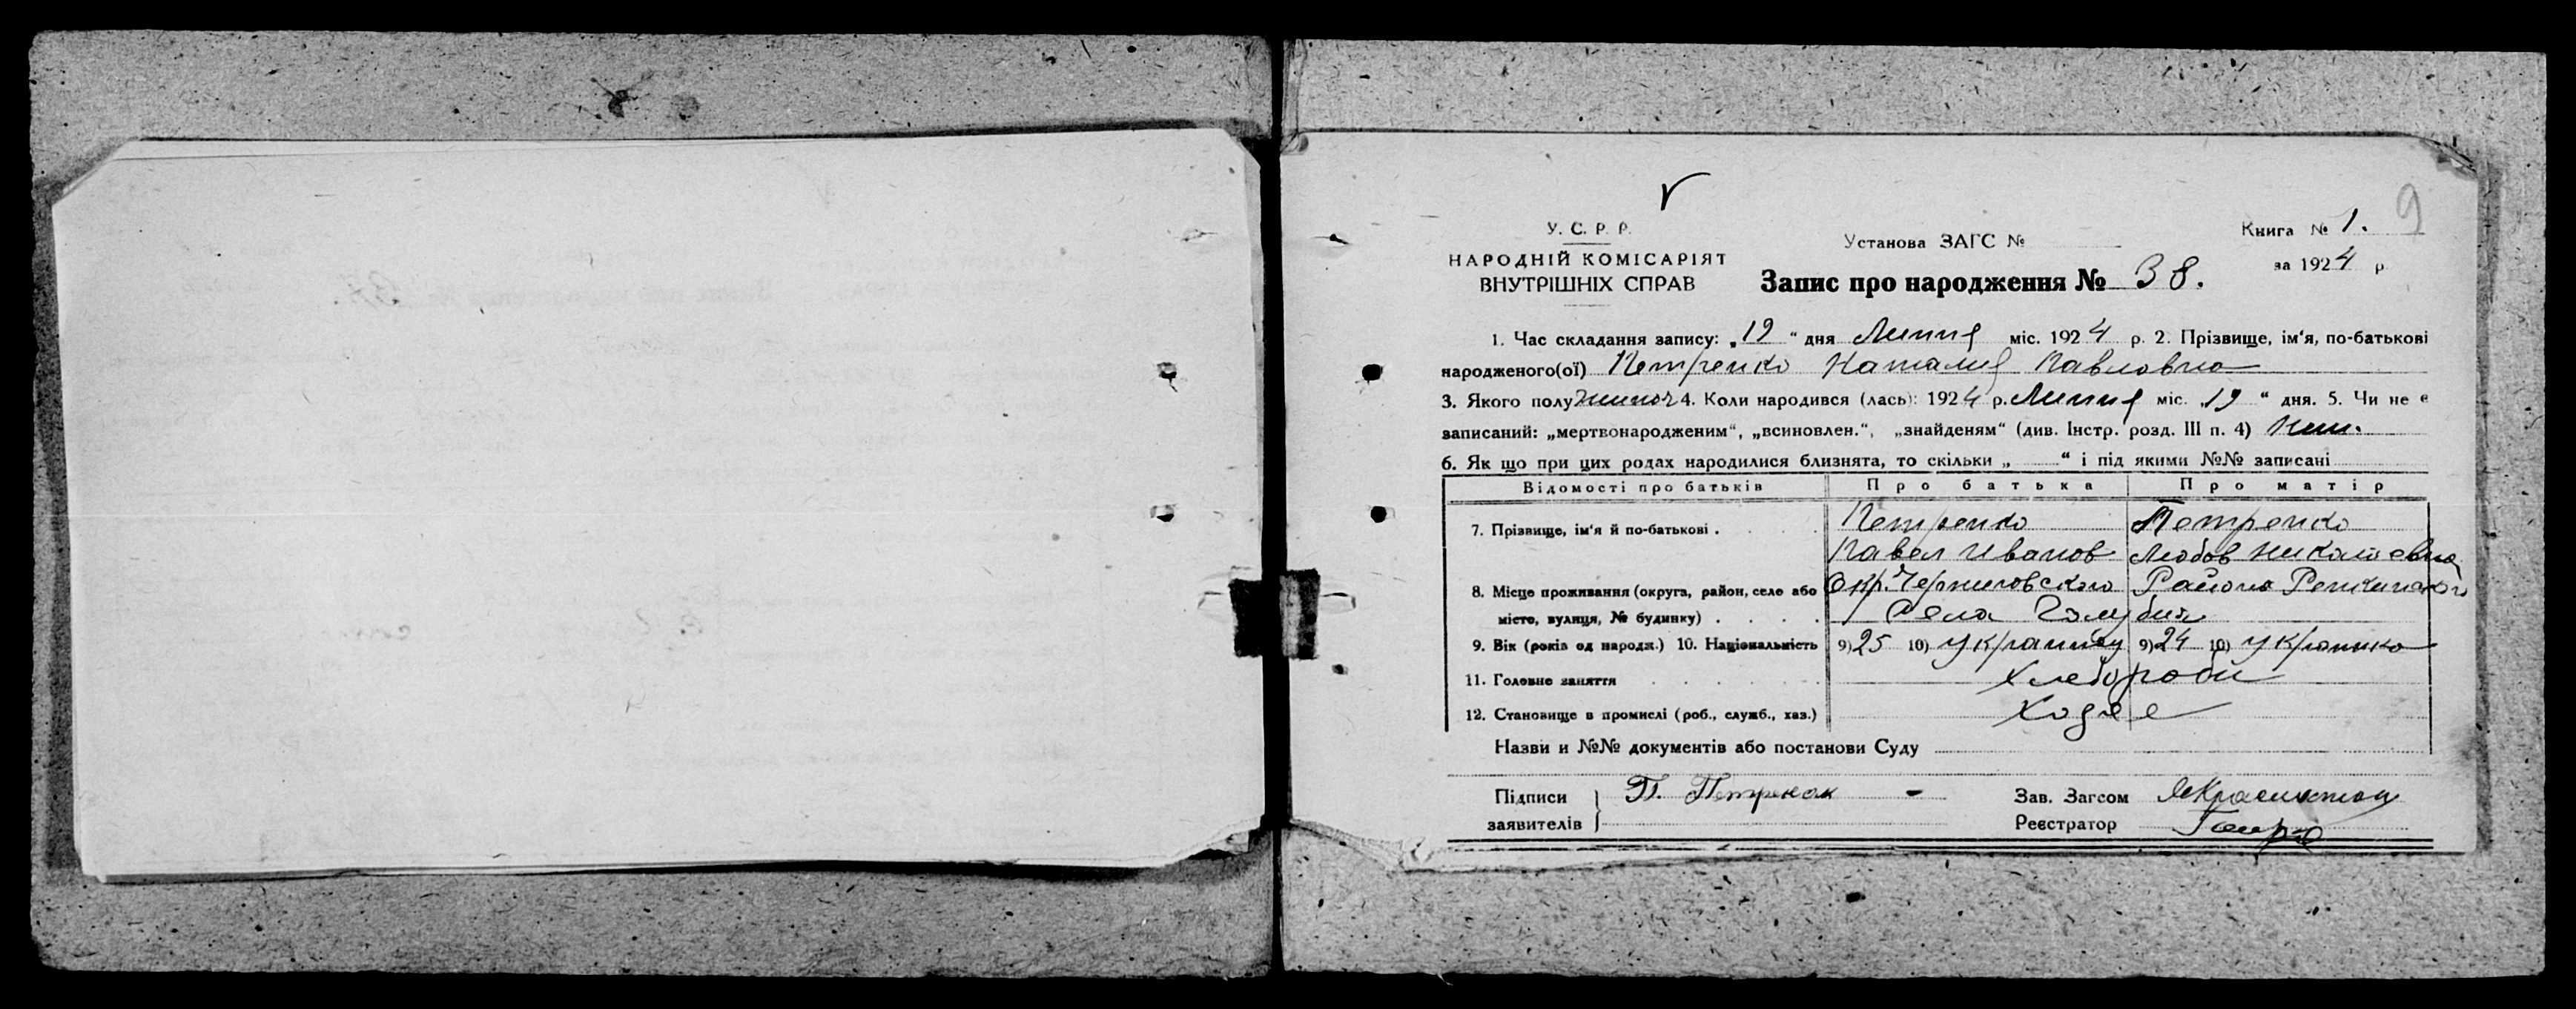 9
У. С. Р. Р.
НАРОДНІЙ КОМІСАРІЯТ
ВНУТРІШНІХ СПРАВ
Установа ЗАГС №
Книга № 1.
за 1924 р.
Запис про народження № 38.
1. Час складання запису: „19“ дня Липня міс. 1924 р. 2. Прізвище, ім'я, по-батькові
народженого(ої) Петренко Наталия Павловна
3. Якого полу жиноч 4. Коли народився (лась): 1924 р. Липня міс. „19“ дня. 5. Чи не є
записаний: „мертвонародженим“, „всиновлен.“, „знайденям“ (див. Інстр. розд. III п. 4) Ни.
6. Як що при цих родах народилися близнята, то скільки „ “ і під якими №№ записані
Відомості про батьків Про батька Про матір
7. Прізвище, ім'я й по-батькові . Петренко Петренко
Павел Иванов Любов Николаевна
8. Місце проживання (округа, район, село або Окр. Черниговского Района Репкинского
місто, вулиця, № будинку) . . . . Села Голубичи
9. Вік (років од народж.) 10. Національність 9) 25 10) Украинец 9) 24 10) Украинка
11. Головне заняття Хлебороби
12. Становище в промислі (роб., служб., хаз.)
Назви и №№ документів або постанови Суду
Підписи заявителів П. Петренок
Зав. Загсом
Реєстратор